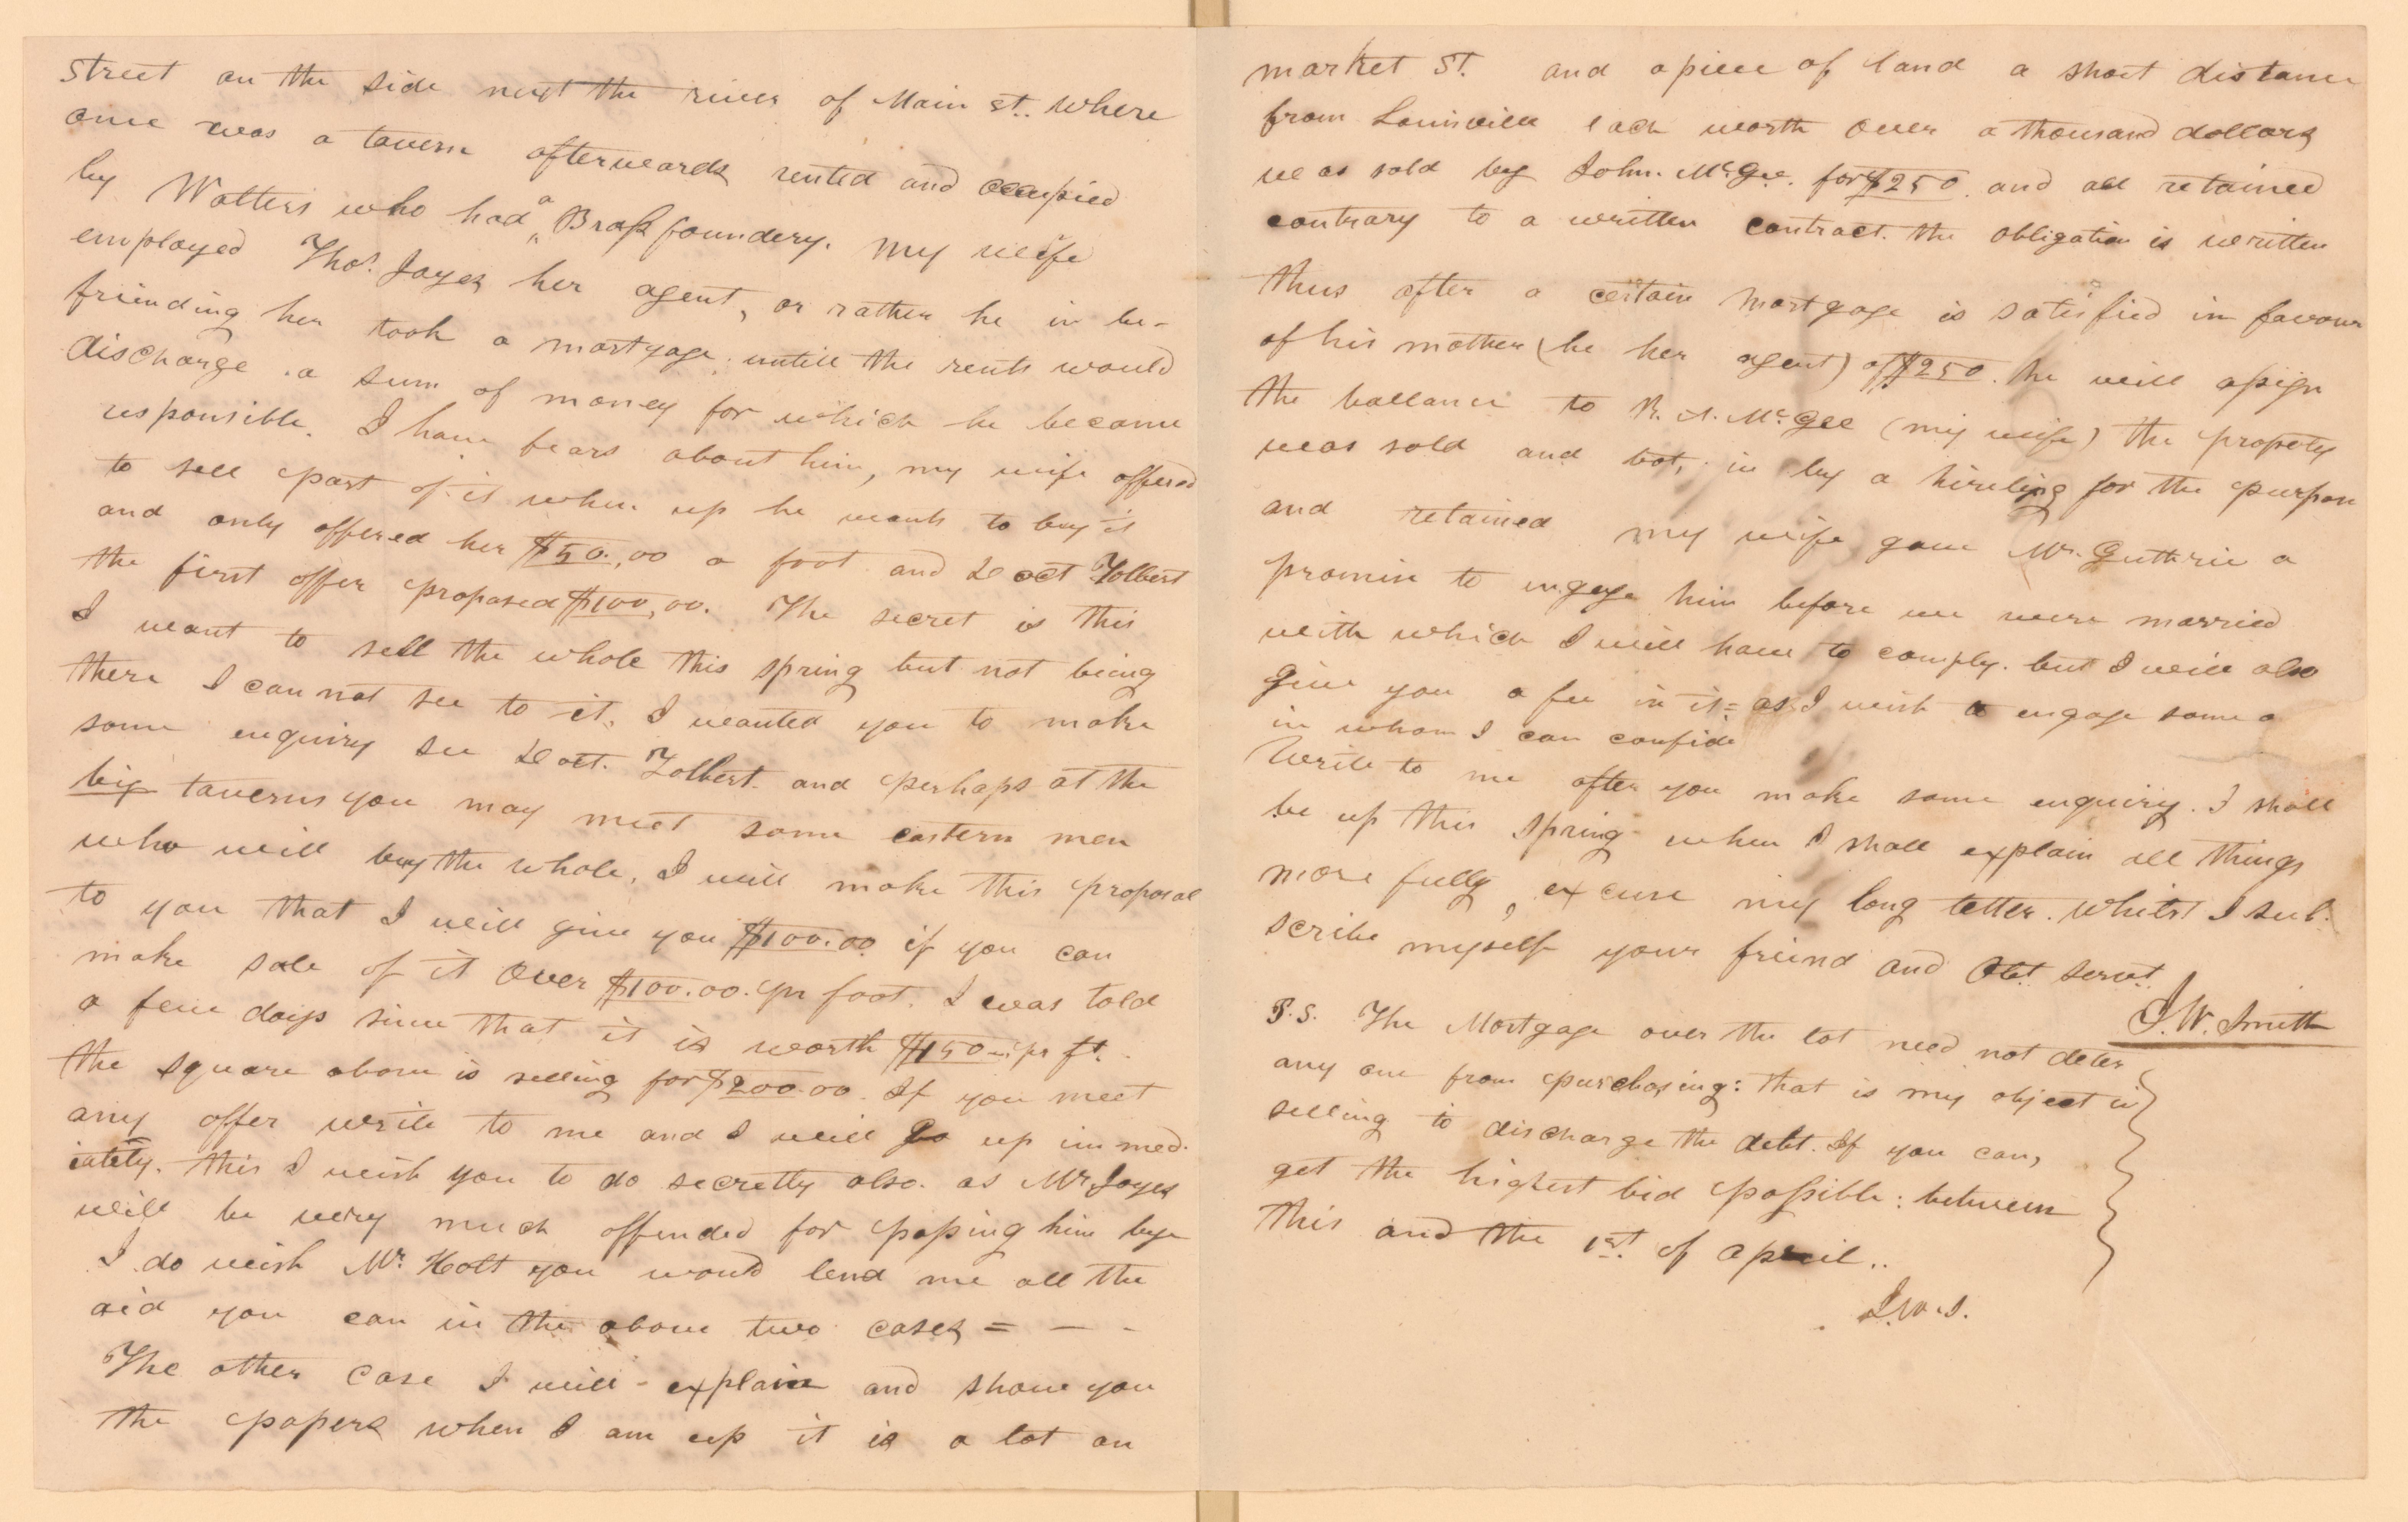 street on the side next the river of Main st. where
once was a tavern afterwards rented and occupied
by Watters who had a Brass foundery. My wife
employed Thos. Joyes her agent, or rather he in be-
friending her took a mortgage untill the rents would
discharge a sum of money for which he became
responsible. I have fears about him, my wife offered
to sell part of it when up he wants to buy it
and only offered her $50.00 a foot and Doct Tolbert
the first offer proposed $100,00. The secret is this
I want to sell the whole this spring but not being
there I can not see to it. I wanted you to make
some enquiry see Doct. Tolbert and perhaps at the
big taverns you may meet some eastern men
who will buy the whole, I will make this proposal
to you that I will give you $100.00 if you can
make sale of it over $100.00. pr foot. I was told
a few days since that it is worth $150 pr ft.
the square above is selling for $200.00. If you meet
any offer write to me and I will go up immed-
iately. this I wish you to do secretly also. as Mr Joyes
will be very much offended for passing him bye
I do wish Mr. Holt you would lend me all the
aid you can in the above two cases = — -
The other case I will - explain and show you
the papers when I am up it is a lot on
market St. and a piece of land a short distance
from Louisville each worth over a thousand dollars
was sold by John. McGee. for $250. and all retained
contrary to a written contract. the obligation is written
thus after a certain mortgage is satisfied in favour
of his mother (he her agent) of $250. he will assign
the ballance to R. A. McGee (my wife) the property
was sold and bot. in by a hireling for the purpose
and retained my wife gave Mr. Guthrie a
promise to engage him before we were married
with which I will have to comply. but I will also
give you a fee in it = as I wish to engage some a
in whom I can confide
Write to me after you make some enquiry. I shall
be up this spring when I shall explain all things
more fully, excuse my long letter. Whilst I sub-
scribe myself your friend and Obt. servt.
J. W. Smith
P.S. The Mortgage over the lot need not deter
any one from purchasing: that is my object in
selling to discharge the debt. If you can,
get the highest bid possible: between
this and the 1st. of april..
J.W.S.